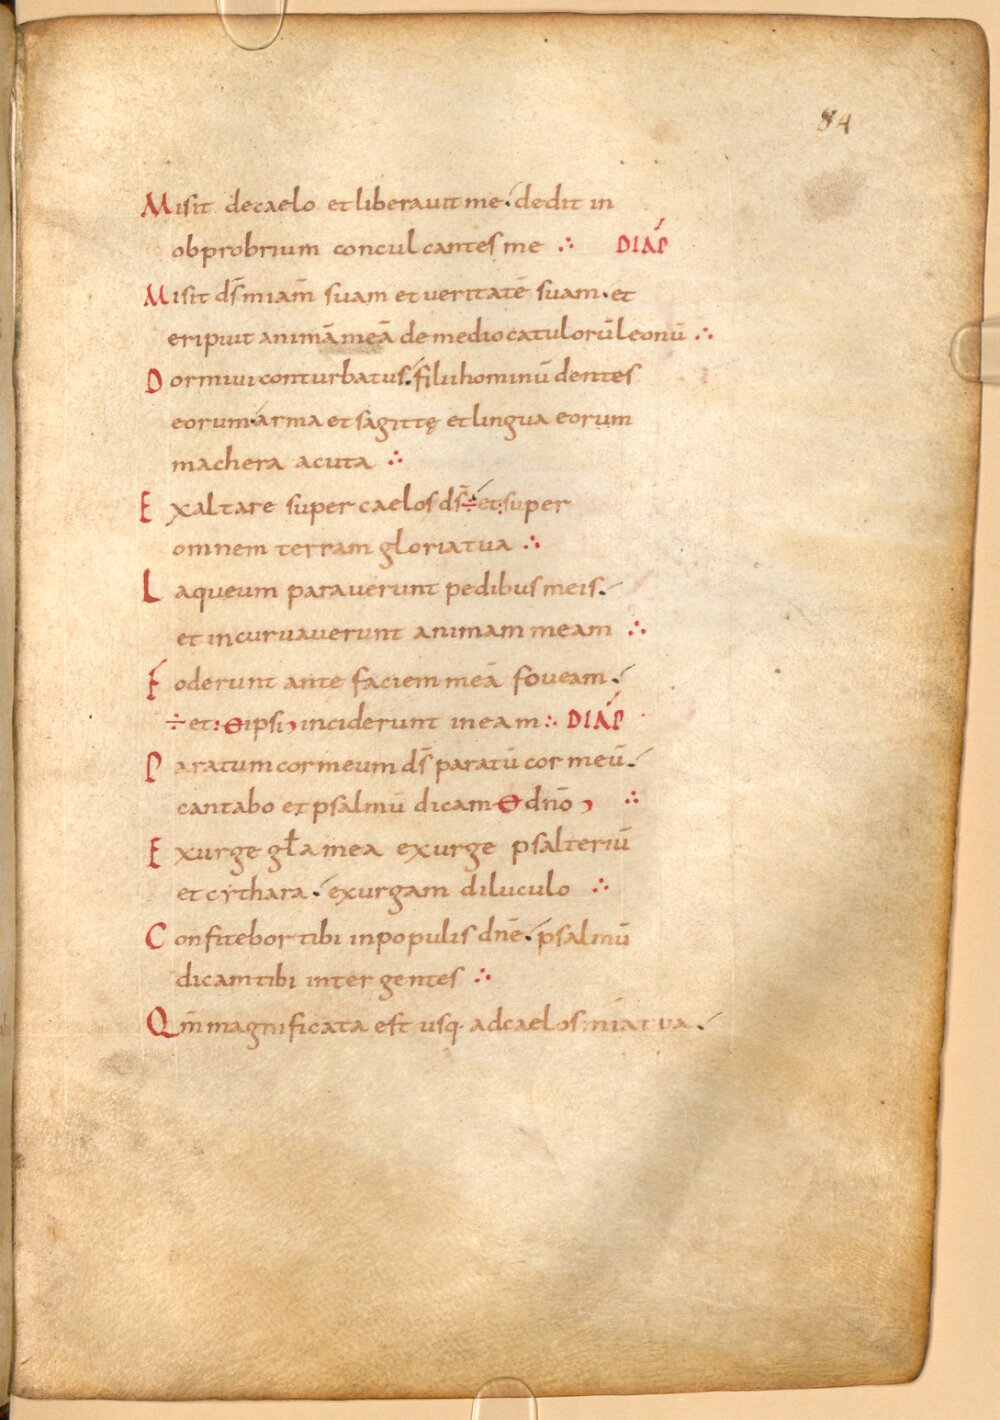 84
Misit de caelo et liberavit me. dedit in
obprobrium conculcantes me ∴ DIAP̄
Misit d̄s miam̄ suam et veritatē suam. et
eripuit animā meā de medio catulorū leonū ∴
Dormivi conturbatus. filii hominū dentes
eorum arma et sagittę et lingua eorum
machera acuta ∴
Exaltare super caelos d̄s ÷ et: super
omnem terram gloria tua ∴
Laqueum paraverunt pedibus meis.
et incurvaverunt animam meam ∴
Foderunt ante faciem meā foveam.
÷ et: ɵ ipsi, inciderunt in eam ∴ DIAP̄
Paratum cor meum d̄s paratū cor meū.
cantabo et psalmū dicam ɵ dn̄o, ∴
Exurge gl̄a mea exurge psalteriū
et cythara. exurgam diluculo ∴
Confitebor tibi in populis dn̄e. psalmū
dicam tibi inter gentes ∴
Qm̄ magnificata est usq. ad caelos mīa tua.